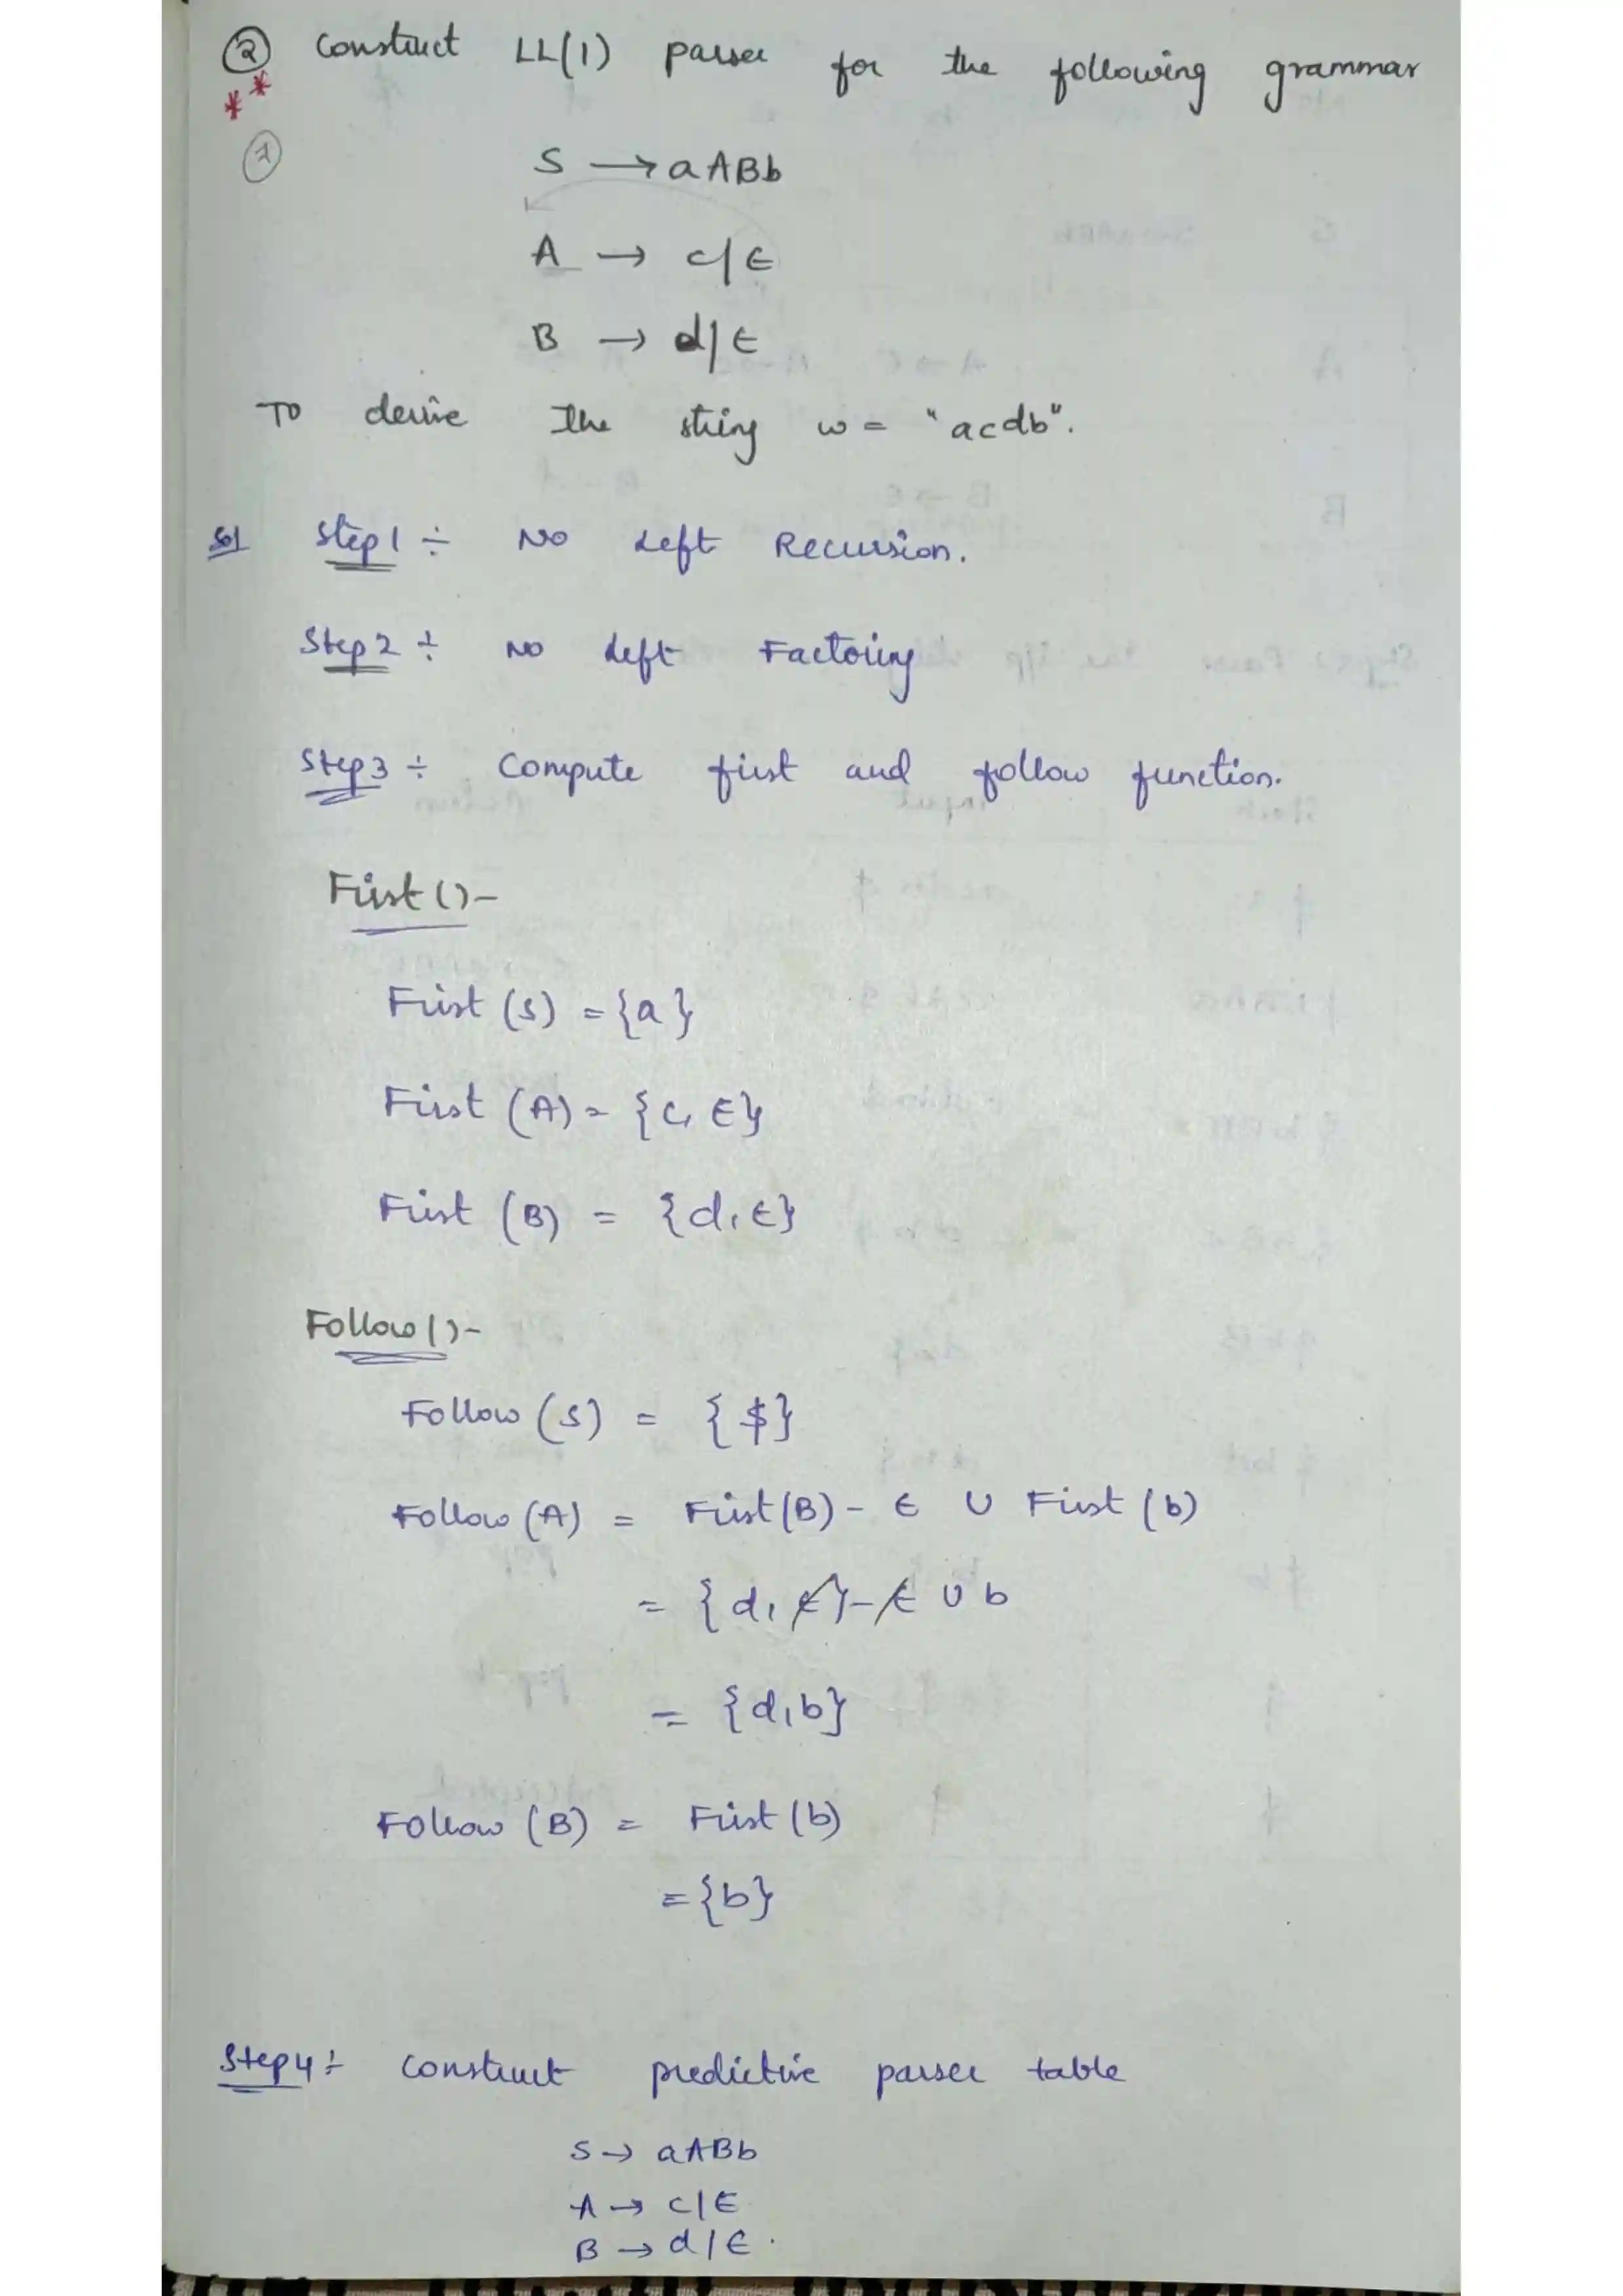 ② Construct LL(1) parser for the following grammar
**
⑦
S → aABb
A → c/ϵ
B → d/ϵ
To derive the string w = "acdb".
Sol Step1 ÷ No Left Recursion.
Step 2 ÷ No Left Factoring
Step3 ÷ Compute first and follow function.
First () -
First (S) = {a}
First (A) = {c, ϵ}
First (B) = {d, ϵ}
Follow () -
Follow (S) = {$}
Follow (A) = First (B) - ϵ ∪ First (b)
= {d, ϵ} - ϵ ∪ b
= {d, b}
Follow (B) = First (b)
= {b}
Step4 ÷ Construct predictive parser table
S → aABb
A → c/ϵ
B → d/ϵ.